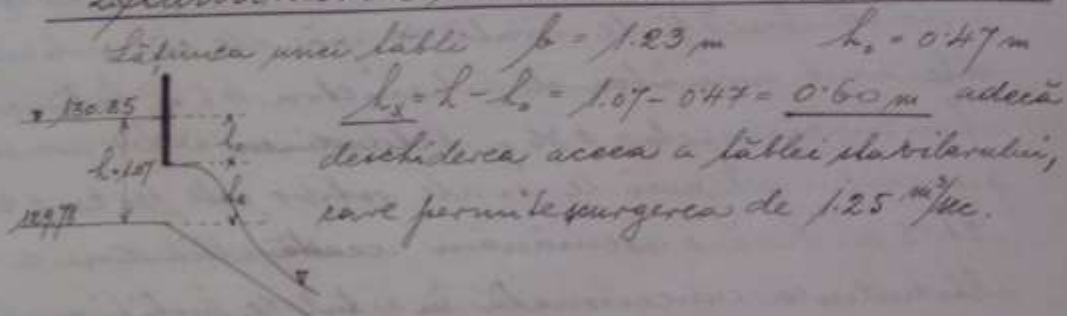 Lățimea unei tăbli b = 1.23 m h₀ = 0.47 m
hₓ = h - h₀ = 1.07 - 0.47 = 0.60 m adecă
deschiderea aceea a tăblei stavilarului,
care permite scurgerea de 1.25 m³/sec.
130.85
h₀
h = 1.07
hₓ
129.78